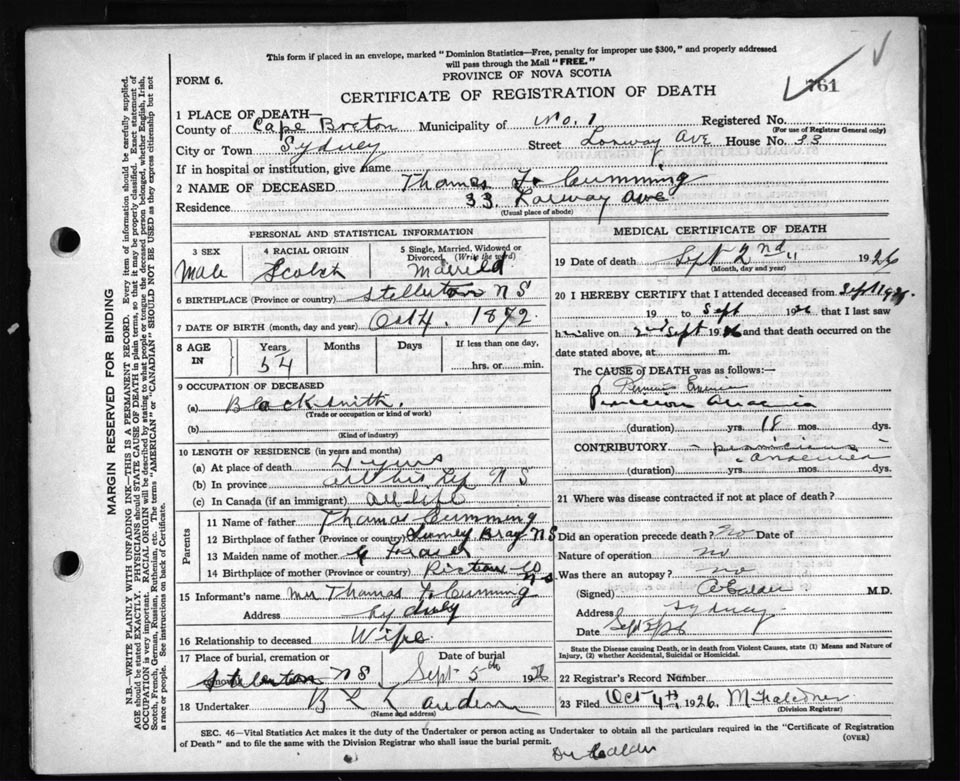 This form if placed in an envelope, marked "Dominion Statistics—Free, penalty for improper use $300," and properly addressed
will pass through the Mail "FREE."
PROVINCE OF NOVA SCOTIA
761
FORM 6.
CERTIFICATE OF REGISTRATION OF DEATH
1 PLACE OF DEATH—
County of Cape Breton Municipality of No. 1 Registered No.
(For use of Registrar General only)
City or Town Sydney Street Lorway Ave House No. 33
If in hospital or institution, give name
2 NAME OF DECEASED Thomas F. Cumming
Residence 33 Lorway Ave
(Usual place of abode)
PERSONAL AND STATISTICAL INFORMATION
3 SEX 4 RACIAL ORIGIN 5 Single, Married, Widowed or
Divorced (Write the word)
Male Scotch Married
6 BIRTHPLACE (Province or country) Stellerton N S
7 DATE OF BIRTH (month, day and year) Oct 4, 1872
8 AGE IN Years Months Days If less than one day,
54 hrs. or min.
9 OCCUPATION OF DECEASED
(a) Blacksmith
(Trade or occupation or kind of work)
(b)
(Kind of industry)
10 LENGTH OF RESIDENCE (in years and months)
(a) At place of death
(b) In province N S
(c) In Canada (if an immigrant) all life
Parents
11 Name of father Thomas Cumming
12 Birthplace of father (Province or country) N S
13 Maiden name of mother
14 Birthplace of mother (Province or country) Pictou Co N.S.
15 Informant's name Mrs Thomas F Cumming
Address Sydney
16 Relationship to deceased Wife
17 Place of burial, cremation or Date of burial
Stellerton NS Sept 5th 1926
18 Undertaker
(Name and address)
MEDICAL CERTIFICATE OF DEATH
19 Date of death Sept 2nd 1926
(Month, day and year)
20 I HEREBY CERTIFY that I attended deceased from Sept 1926
19 to Sept 1926 that I last saw
him alive on 2nd Sept 1926 and that death occurred on
date stated above, at m.
The CAUSE of DEATH was as follows:—
Pernicious Anaemia
(duration) yrs. 18 mos. dys.
CONTRIBUTORY pernicious
Anaemia
(duration) yrs. mos. dys.
21 Where was disease contracted if not at place of death?
Did an operation precede death? no Date of
Nature of operation no
Was there an autopsy? no
(Signed) M.D.
Address Sydney
Date
State the Disease causing Death, or in death from Violent Causes, state (1) Means and Nature of
Injury, (2) whether Accidental, Suicidal or Homicidal.
22 Registrar's Record Number
23 Filed Oct 4th, 1926
(Division Registrar)
SEC. 46—Vital Statistics Act makes it the duty of the Undertaker or person acting as Undertaker to obtain all the particulars required in the "Certificate of Registration
of Death" and to file the same with the Division Registrar who shall issue the burial permit.
(OVER)
MARGIN RESERVED FOR BINDING
N.B.—WRITE PLAINLY WITH UNFADING INK—THIS IS A PERMANENT RECORD. Every item of information should be carefully supplied.
AGE should be stated EXACTLY. PHYSICIANS should STATE CAUSE OF DEATH in plain terms, so that it may be properly classified. Exact statement of
OCCUPATION is very important. RACIAL ORIGIN will be described by stating to what people or tongue the deceased person belonged, whether English, Irish,
Scotch, French, German, Russian, Ruthenian, etc. The terms "AMERICAN" or "CANADIAN" SHOULD NOT BE USED as they express citizenship but not
a race or people. See instructions on back of Certificate.